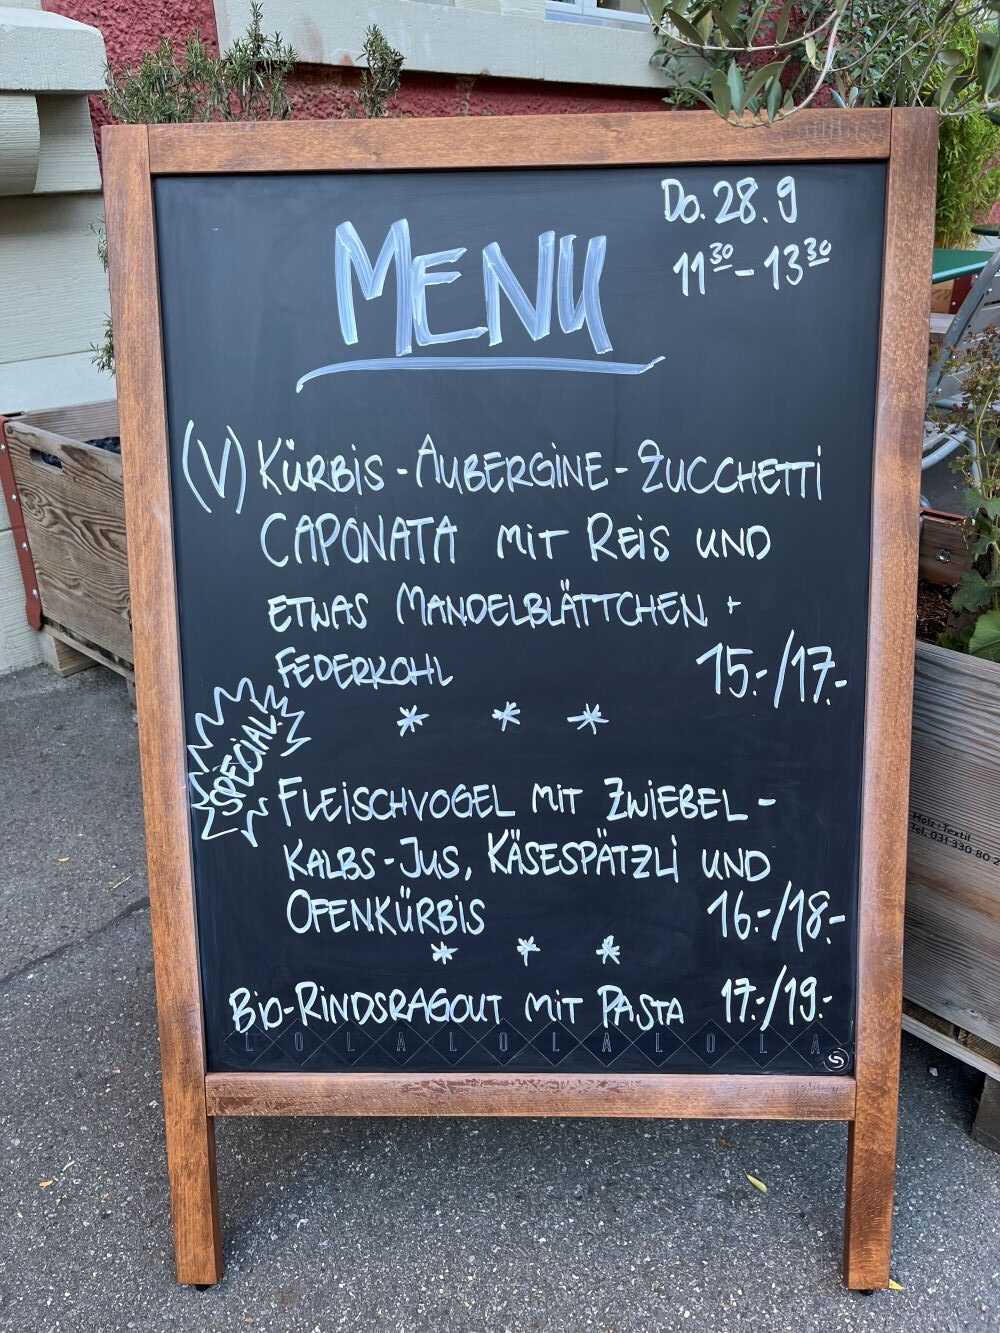 Do. 28. 9
11³⁰ - 13³⁰
MENU
(V) KÜRBIS - AUBERGINE - ZUCCHETTI
CAPONATA MIT REIS UND
ETWAS MANDELBLÄTTCHEN +
FEDERKOHL 15.-/17.-
* * *
SPECIAL!
FLEISCHVOGEL MIT ZWIEBEL -
KALBS - JUS, KÄSESPÄTZLI UND
OFENKÜRBIS 16.-/18.-
* * *
BIO-RINDSRAGOUT MIT PASTA 17.-/19.-
LOLALOLALOLA
Holz + Textil
Tel. 031 330 80 2